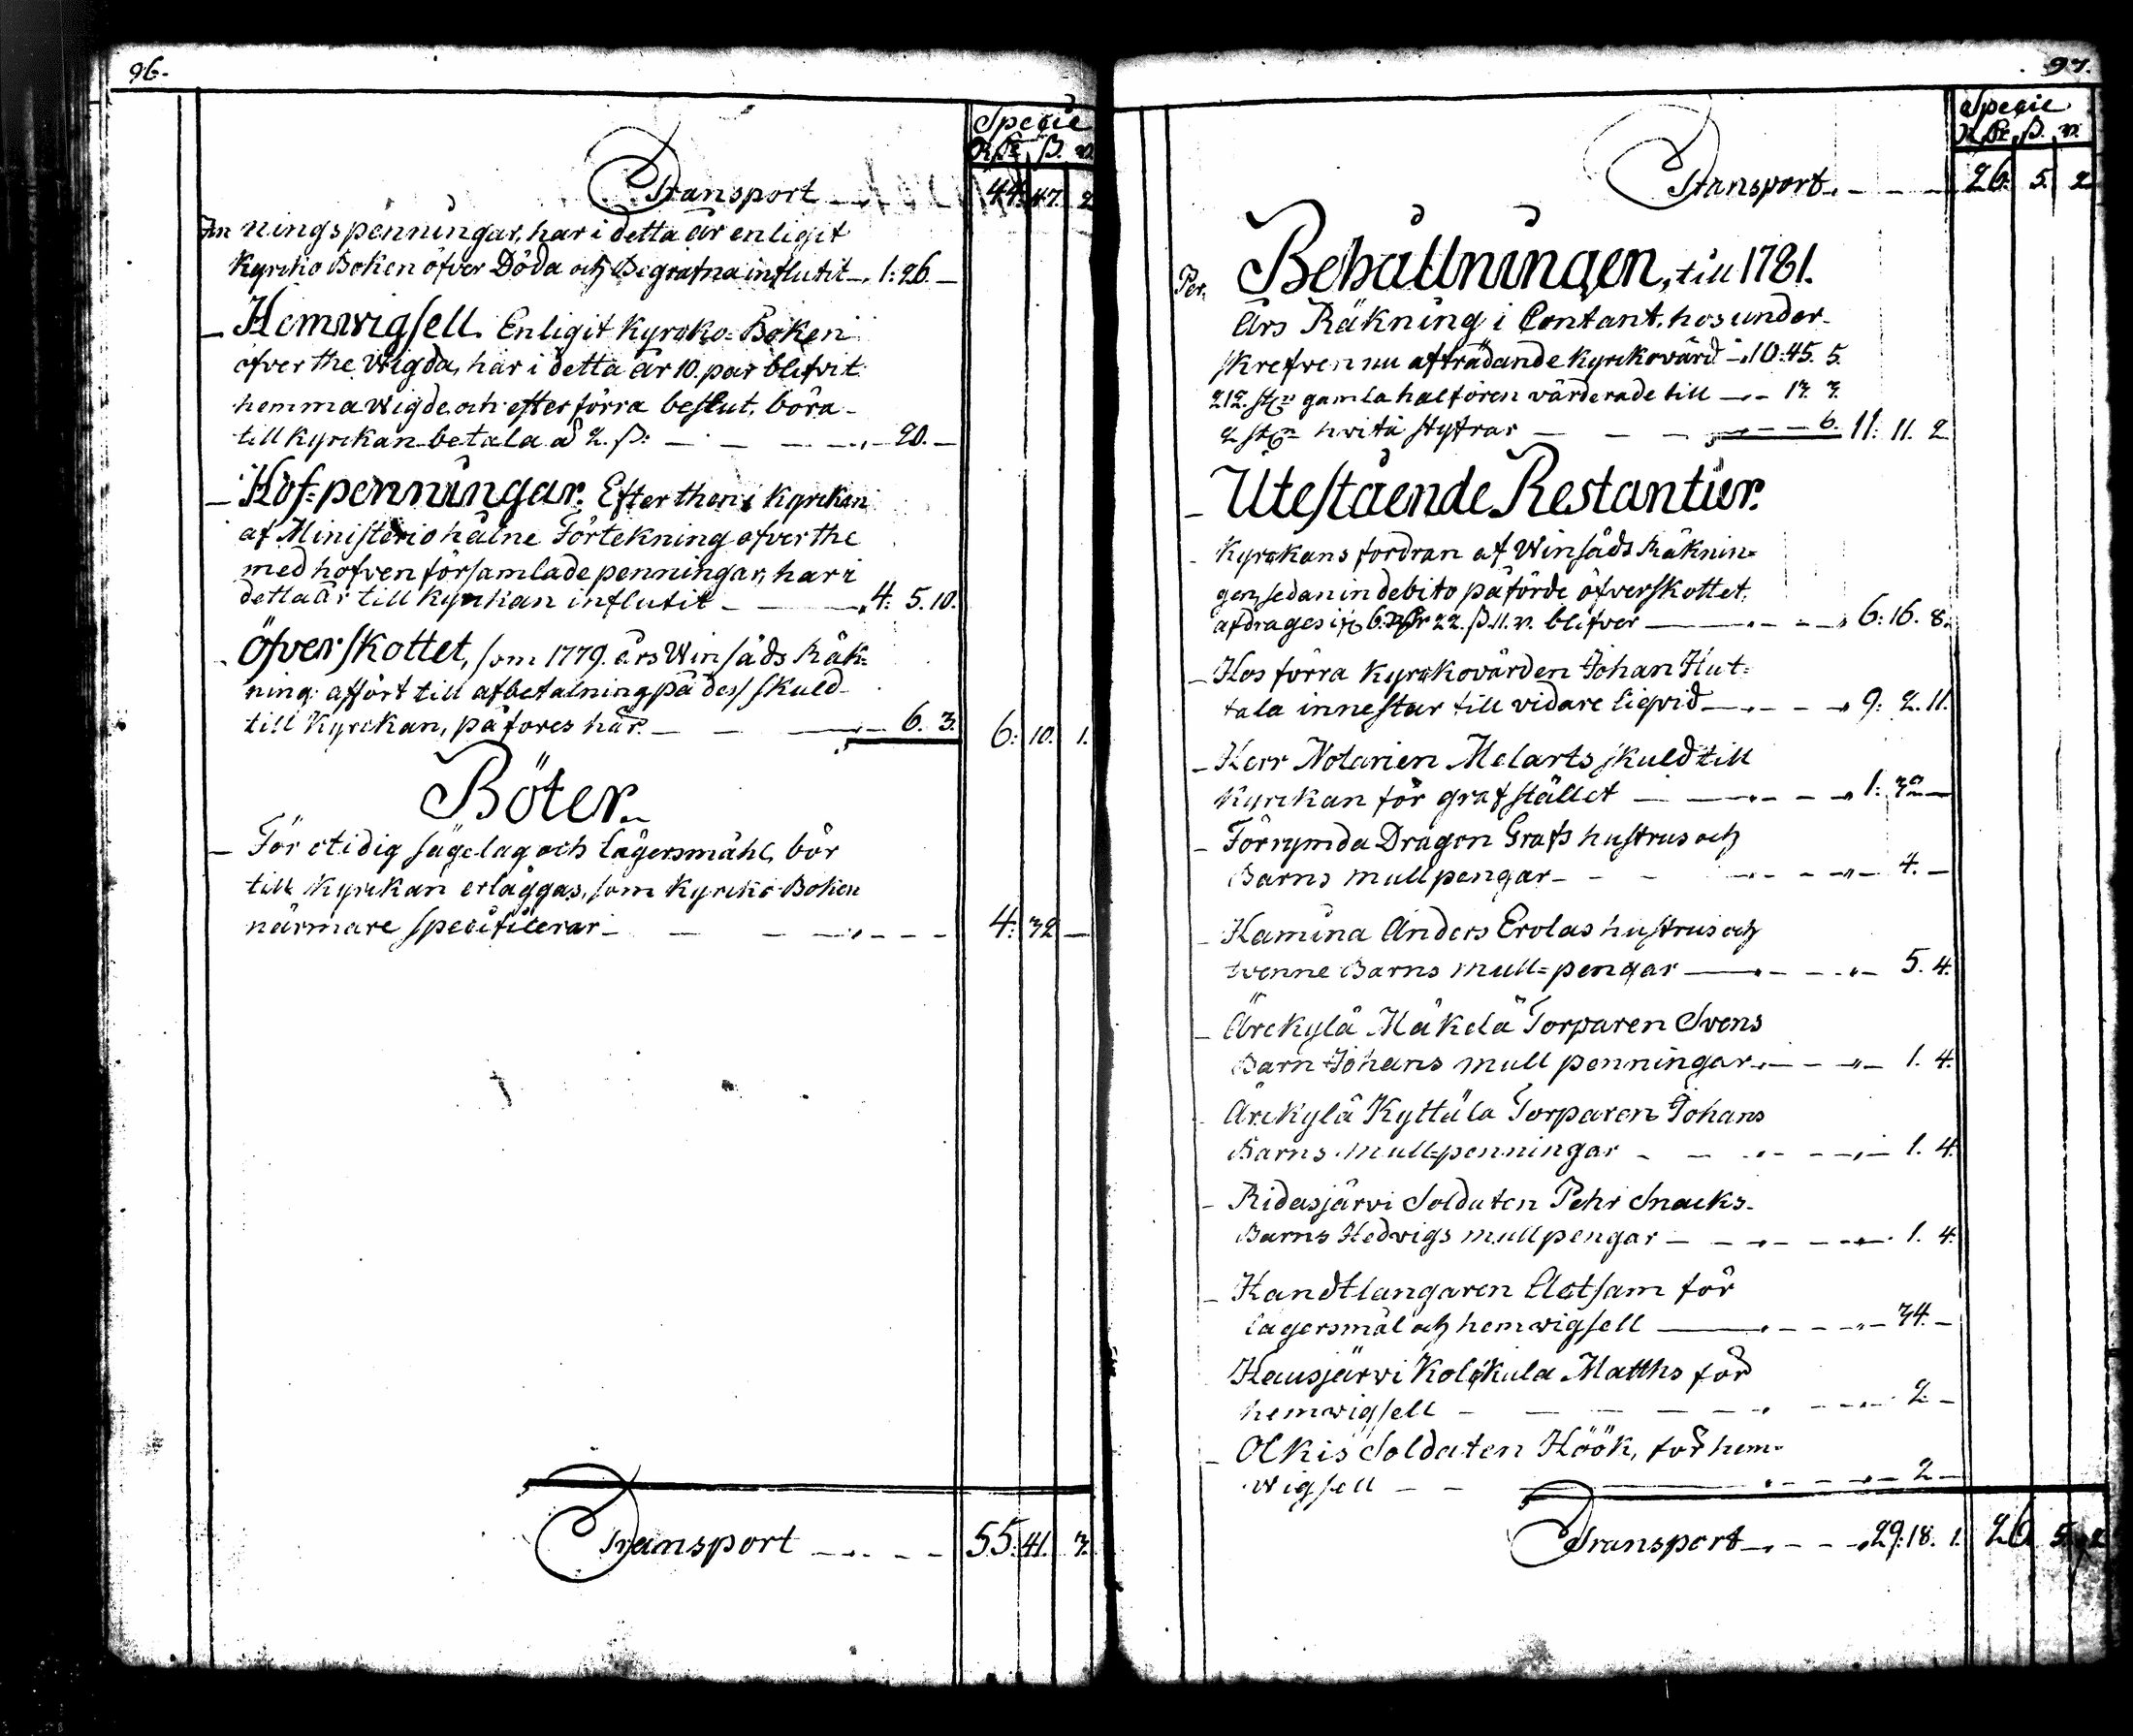 96.
Specie
R.dr. ß. rr.
Transport 44: 47. 2
An ningspenningar, har i detta år enligit
Kyrcko Boken öfver Döda och Begrafna influtit 1: 26. —
— Hemwigsell. Enligit Kyrcko-Boken
öfver the Wigda, har i detta år 10. par blifvit
hemma wigde, och efter förra beslut, böra
till Kyrckan betala à 2. ß: — 20. —
— Hof-penningar. Efter then i Kyrckan
af Ministerio hålne Förtekning öfver the
med hofven församlade penningar, har i
detta år till Kyrckan influtit — 4: 5. 10.
Öfverskottet, som 1779. års Winsåds Räk=
ning affört till afbetalning på dess skuld
till Kyrckan, påföres här. — 6. 3. 6: 10. 1.
Böter.
— För otidig sägelag och Lägersmåhl, bör
till Kyrckan erläggas, som Kyrcko Boken
närmare specificerar — 4: 32 —
Transport 55: 41. 3.
97.
Specie
R.dr. ß. rr.
Transport 26. 5. 2
Per. Behållningen, till 1781.
Års Räkning i Contant, hos under-
skrefven nu afträdande Kyrckovärd 10: 45. 5.
212. st. gamla halfören värderade till 17. 3.
2 st. hvita styfrar 6. 11: 11. 2
— Utestående Restantier.
Kyrckans fordran af Winsåds Räknin=
gen, sedan in debito påförde öfverskottet,
afdrages 6. Rdr 22. ß. 11. rr. blifver 6: 16. 8.
— Hos förra Kyrckovärden Johan Hut=
tala innestår till vidare liqvid 9: 2. 11.
— Herr Notarien Melarts skuld till
Kyrckan för grafstället 1: 32 —
— Förrymda Dragon Grafs hustrus och
Barns mullpengar 4. —
— Hamina Anders Erolas hustrus och
tvenne Barns mull=pengar 5. 4.
— Ärekylä Mäkelä Torparen Svens
Barn Johans mull penningar 1. 4.
Ärekylä Kyttälä Torparen Johans
Barns mull=penningar 1. 4.
— Ridasjärvi Soldaten Pehr Snacks
Barns Hedvigs mullpengar 1. 4.
— Handtlangaren Eletsam för
lägersmål och hemwigsell 34. —
Hausjärvi Kolkkula Matths för
hemwigsell 2 —
— Olkis Soldaten Höök, för hem=
wigsell 2 —
Transport 29: 18. 1. 26. 5. 2